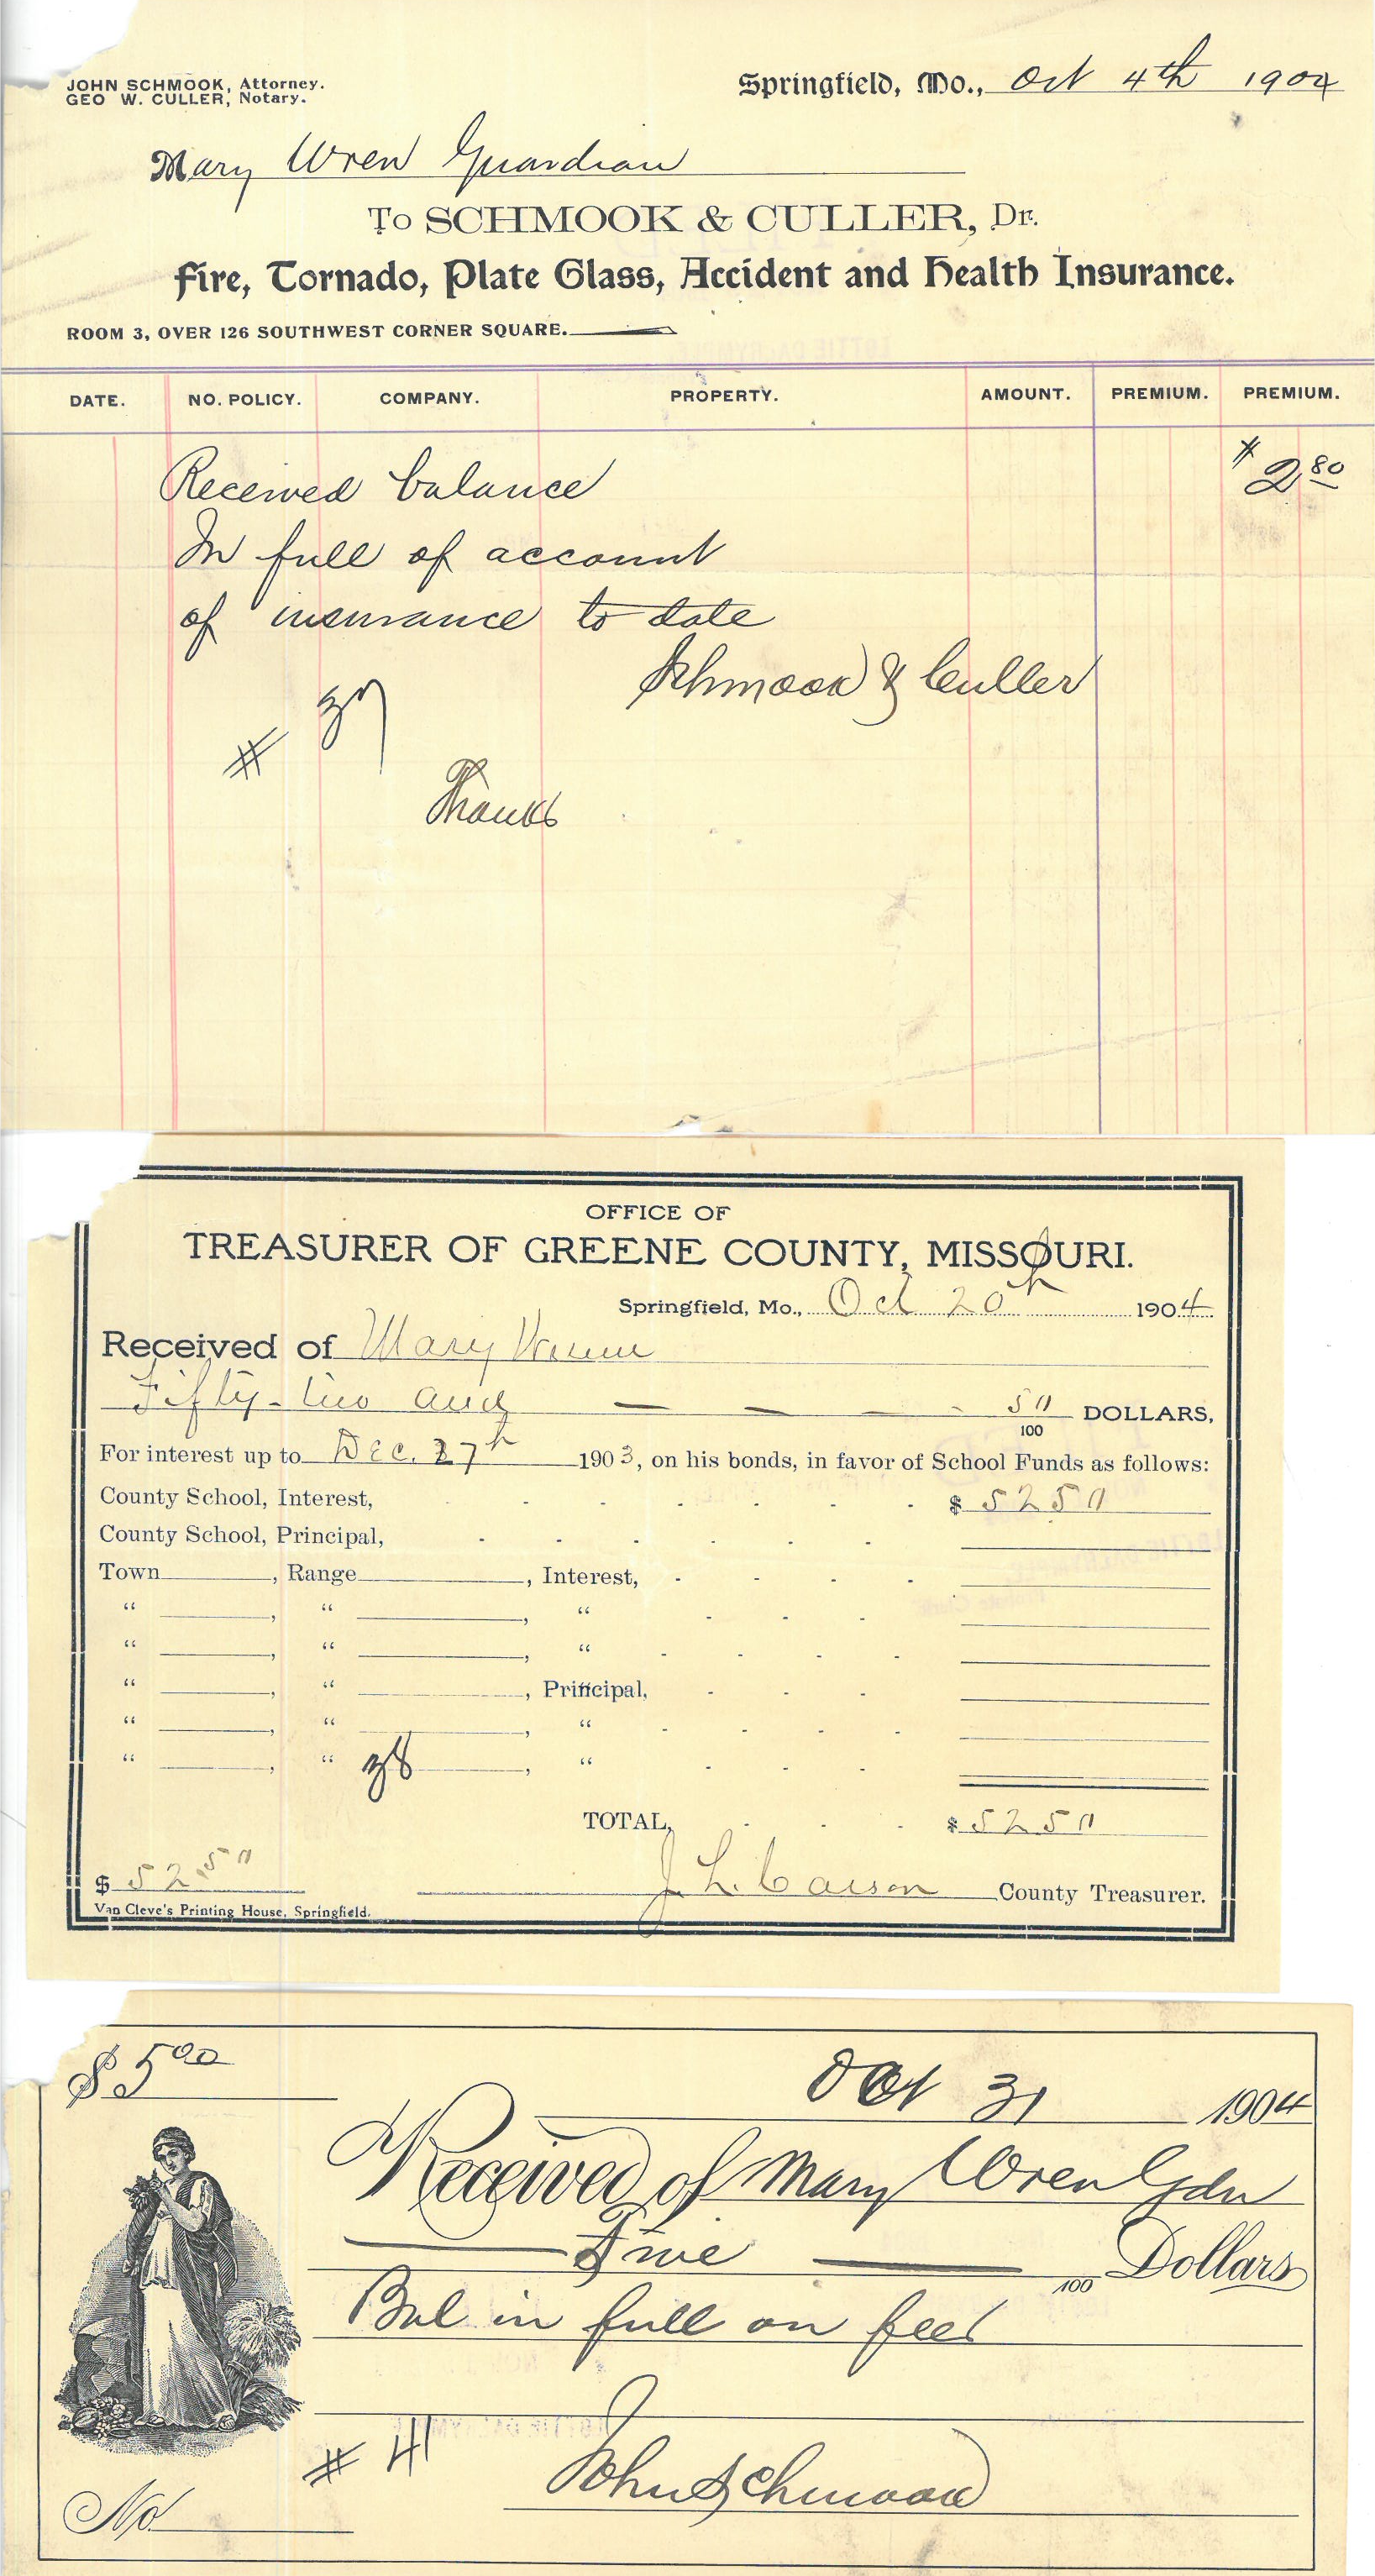 JOHN SCHMOOK, Attorney.
GEO W. CULLER, Notary.
Springfield, Mo., Oct 4th 1904
Mary Wren Guardian
To SCHMOOK & CULLER, Dr.
Fire, Tornado, Plate Glass, Accident and Health Insurance.
ROOM 3, OVER 126 SOUTHWEST CORNER SQUARE.
DATE. NO. POLICY. COMPANY. PROPERTY. AMOUNT. PREMIUM. PREMIUM.
Received balance $2.80
In full of account
of insurance to date
Schmook & Culler
# 37
Thanks
OFFICE OF
TREASURER OF GREENE COUNTY, MISSOURI.
Springfield, Mo., Oct 20th 1904
Received of Mary
Fifty-two and — — — - 50/100 DOLLARS,
For interest up to Dec. 27th 1903, on his bonds, in favor of School Funds as follows:
County School, Interest, $ 52 50
County School, Principal,
Town , Range , Interest,
“ , “ , “
“ , “ , “
“ , “ , Principal,
“ , “ , “
“ , “ 38 , “
TOTAL, $ 52 50
$ 52.50
J. L. Carson County Treasurer.
Van Cleve's Printing House, Springfield.
$ 5.00
Oct 31 1904
Received of Mary Wren Gdn
Five /100 Dollars
Bal in full on fees
# 41
John Schmook
No.